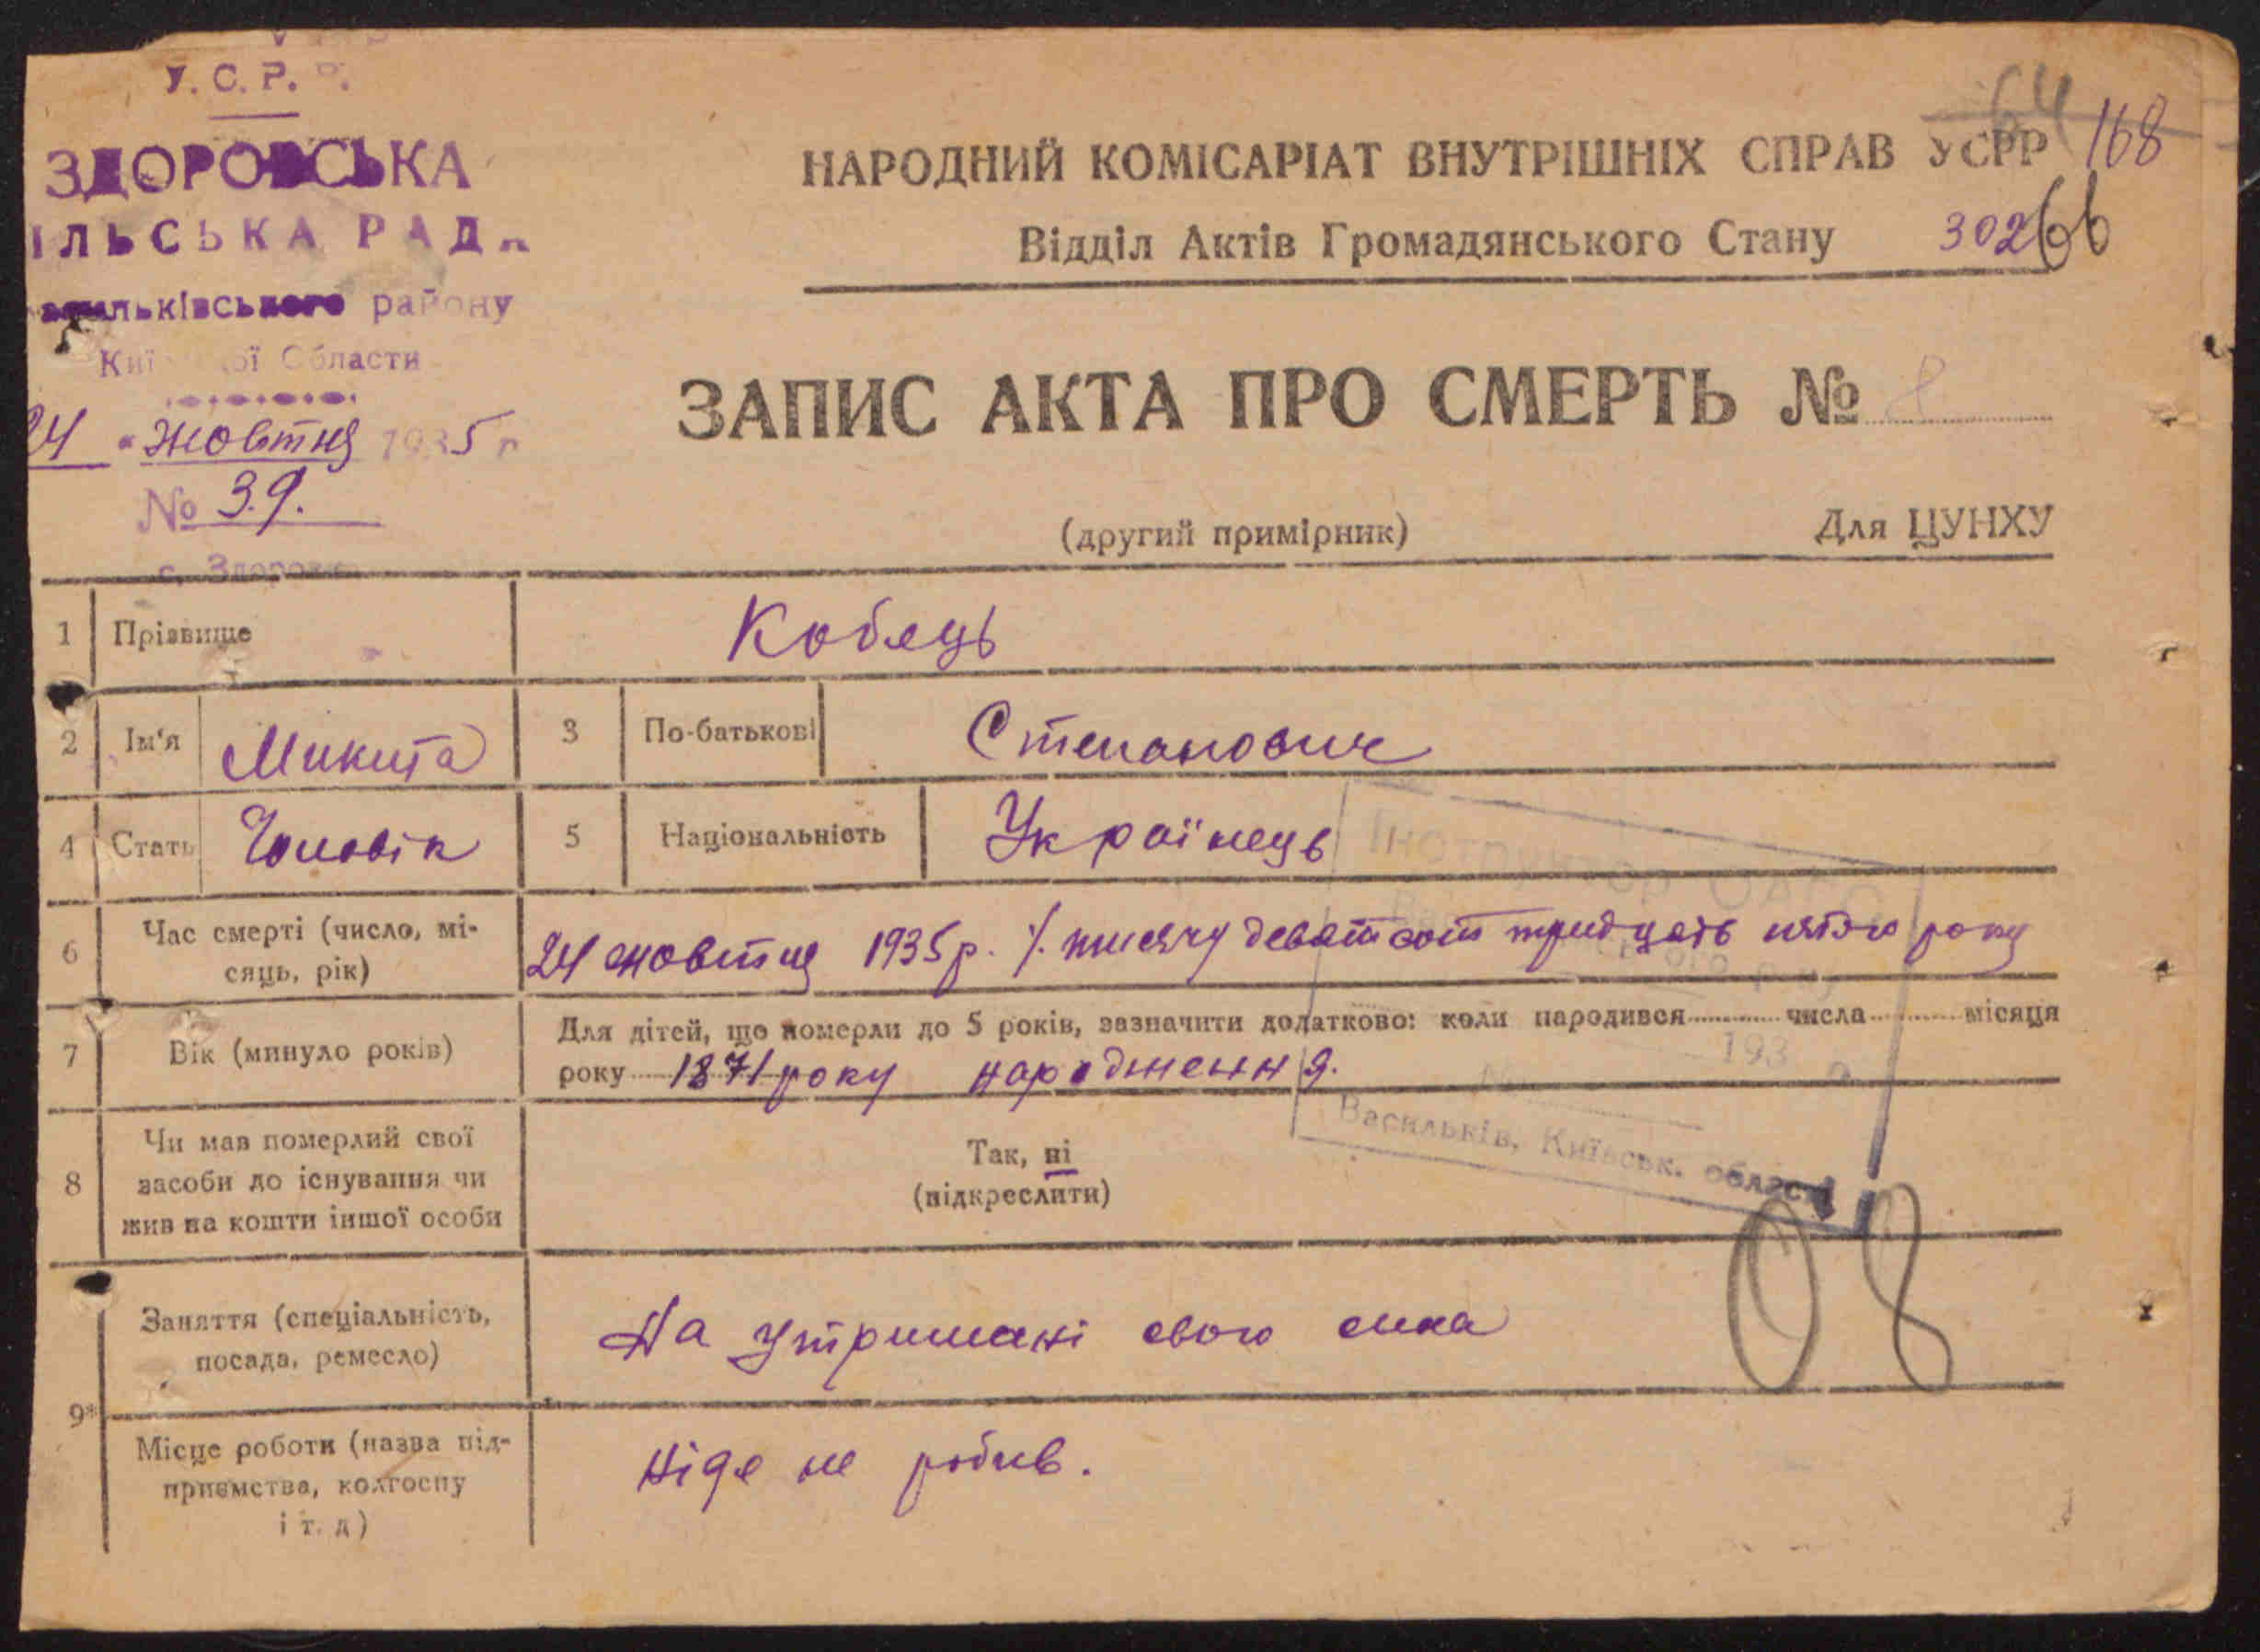 У. С. Р. Р.
ЗДОРОВСЬКА
ІЛЬСЬКА РАДА
васильківського району
Київської Области
24 " жовтня 1935 р
№ 39.
с. Здоровка
64
168
НАРОДНИЙ КОМІСАРІАТ ВНУТРІШНІХ СПРАВ УСРР
Відділ Актів Громадянського Стану
302
66
ЗАПИС АКТА ПРО СМЕРТЬ № 8
(другий примірник)
Для ЦУНХУ
1 Прізвище Кобець
2 Ім'я Микита 3 По-батькові Степанович
4 Стать Чоловік 5 Національність Українець
6 Час смерті (число, мі-
сяць, рік)
24 жовтня 1935 р. /. тисячу девятсот тридцять пятого року
7 Вік (минуло років)
Для дітей, що померли до 5 років, зазначити додатково: коли народився числа місяця
року 1871 року народження.
8 Чи мав померлий свої
засоби до існування чи
жив на кошти іншої особи
Так, ні
(підкреслити)
Інструктор ОАГС
193 р.
№
Васильків, Київськ. області
08
9* Заняття (спеціальність,
посада, ремесло)
На утримані свого сина
Місце роботи (назва під-
приємства, колгоспу
і т. д)
Ніде не робив.